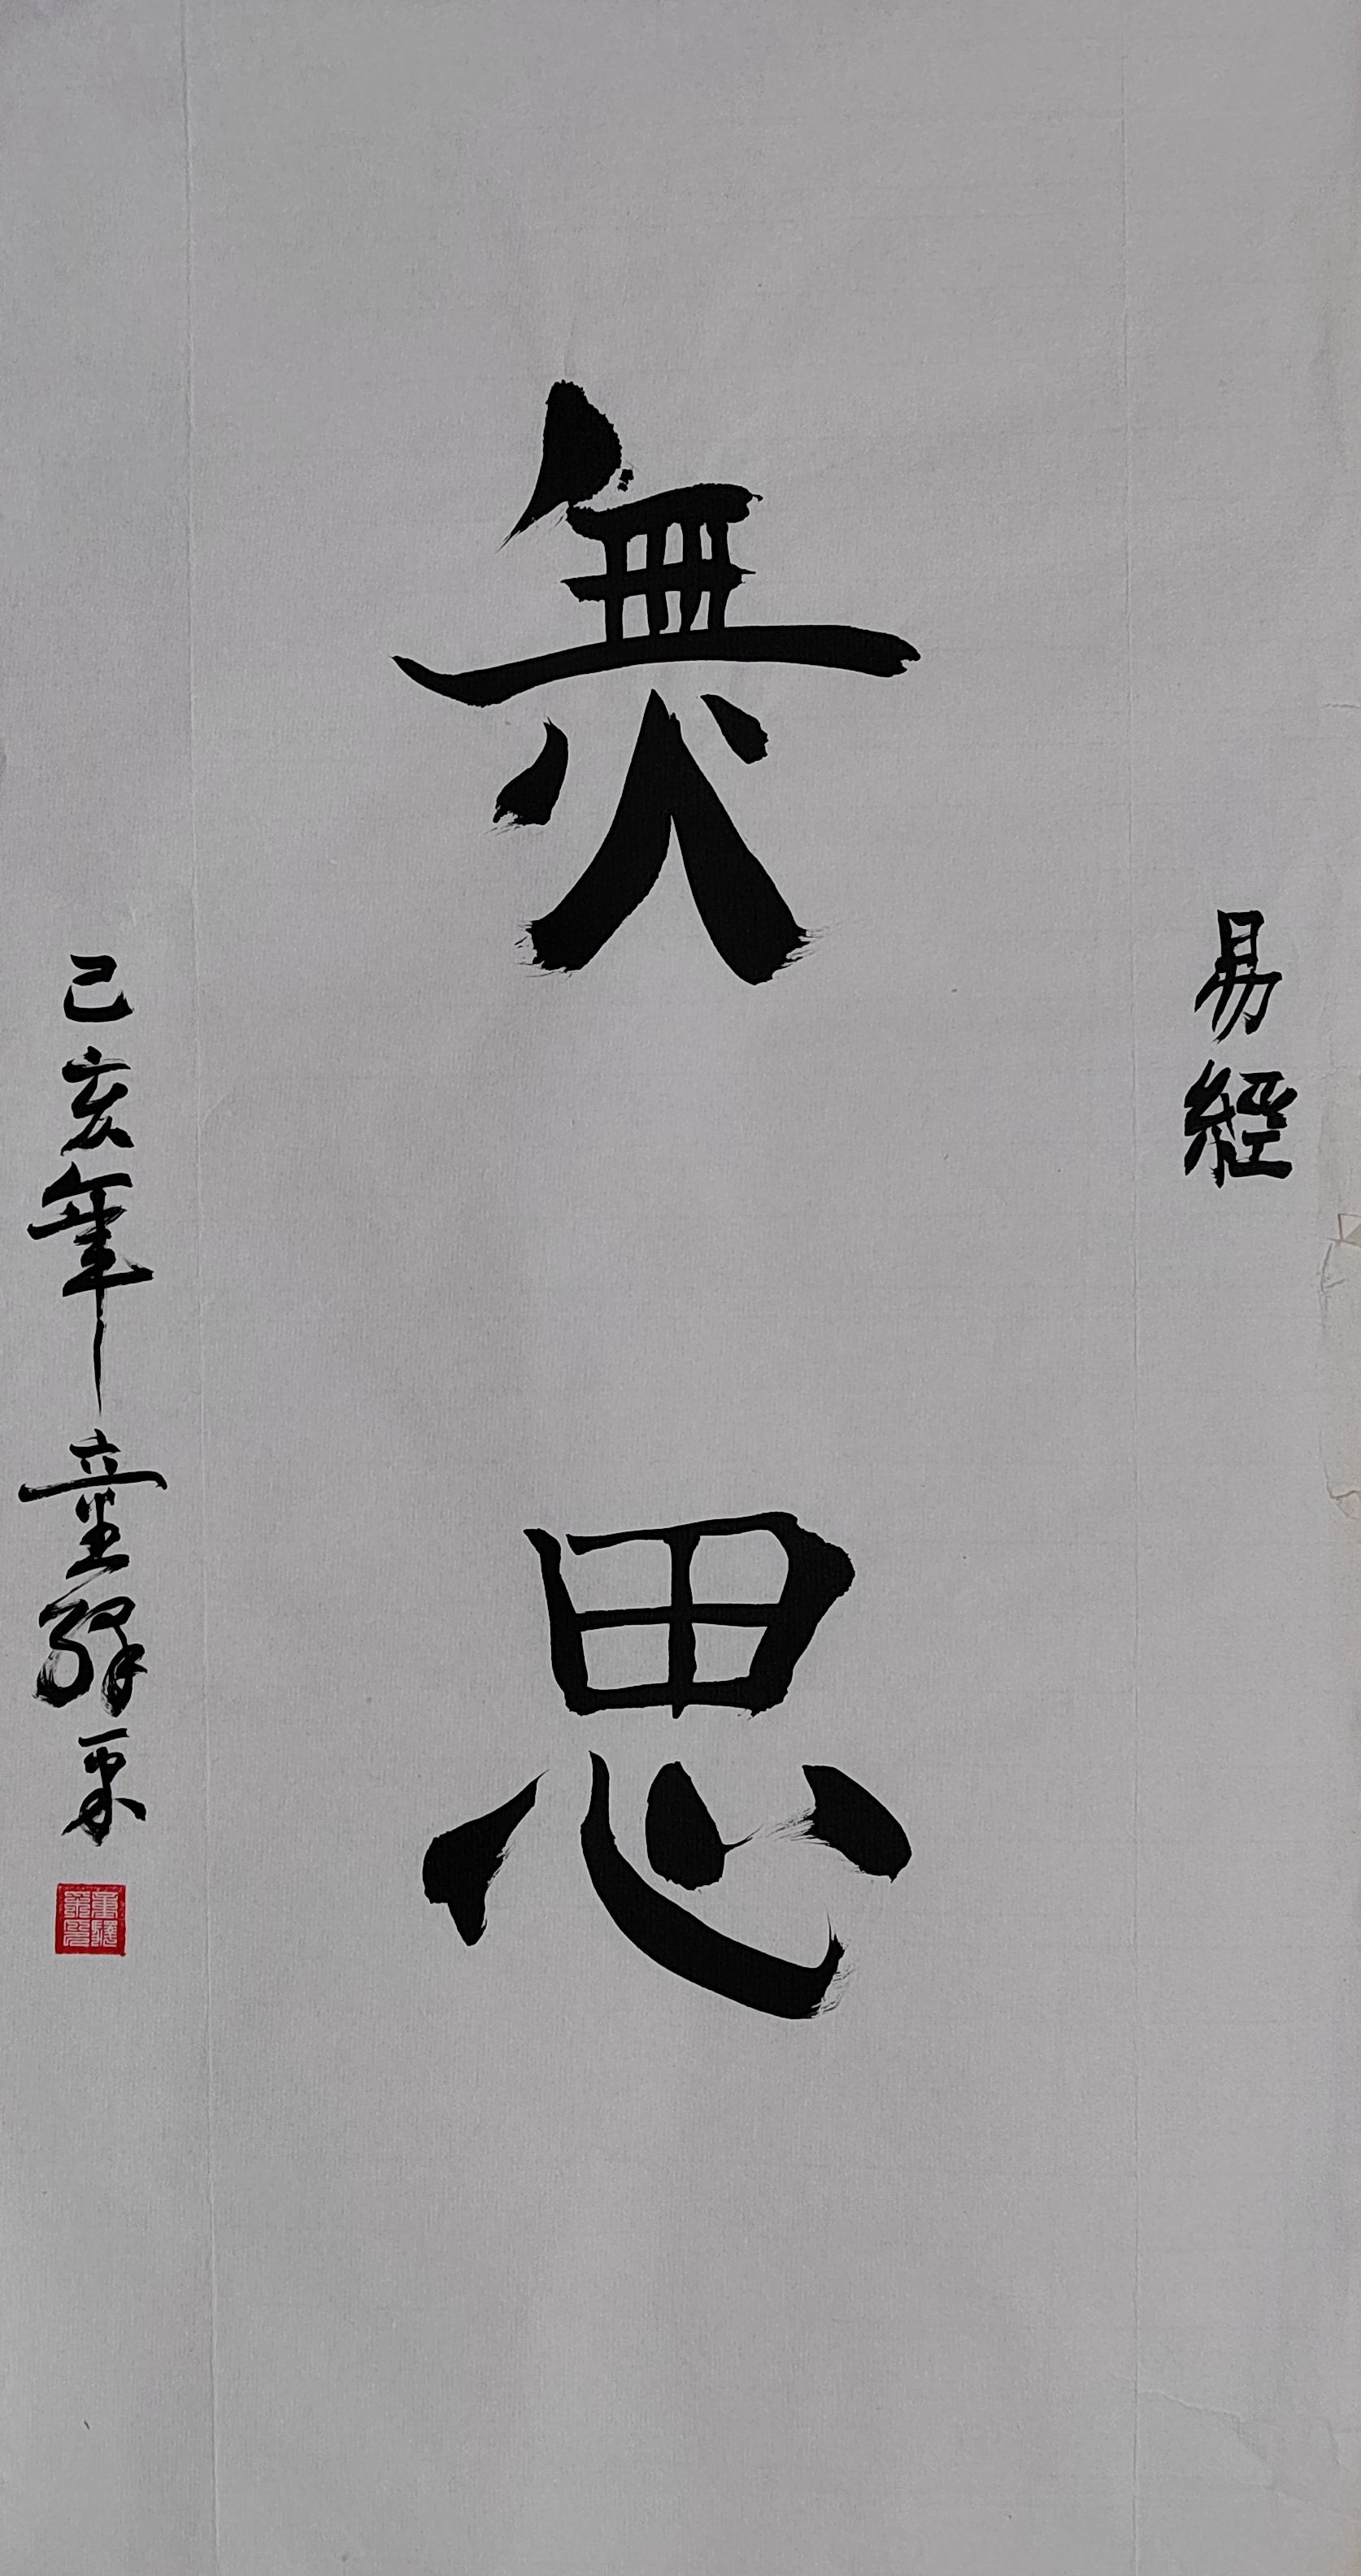 易經
無思
己亥年童驛采